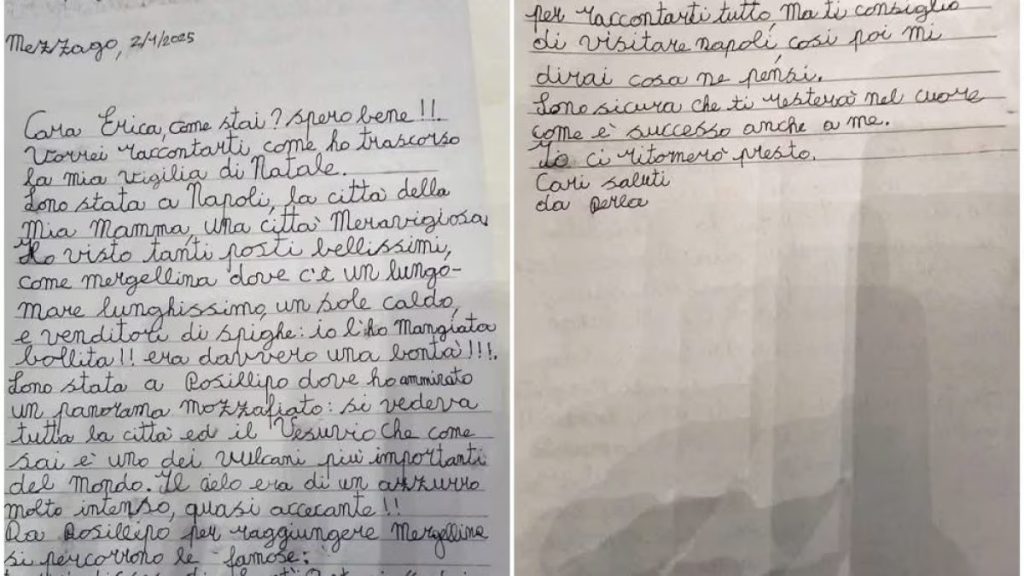 Mezzago, 2/1/2025
Cara Erica, come stai? spero bene!!
Vorrei raccontarti, come ho trascorso
la mia vigilia di Natale.
Sono stata a Napoli, la città della
mia Mamma, una città Meravigiosa
Ho visto tanti posti bellissimi,
come mergellina dove c'è un lungo-
mare lunghissimo, un sole caldo,
e venditori di spighe: io l'ho mangiata
bollita!! era davvero una bontà!!!.
Sono stata a Posillipo dove ho ammirato
un panorama mozzafiato: si vedeva
tutta la città ed il Vesuvio che come
sai è uno dei vulcani più importanti
del mondo. Il cielo era di un azzurro
molto intenso, quasi accecante!!
Da Posillipo per raggiungere Mergellina
si percorrono le famose:
per raccontarti tutto, ma ti consiglio
di visitare napoli, così poi mi
dirai cosa ne pensi.
Sono sicura che ti resterà nel cuore
come è successo anche a me.
Io ci ritornerò presto.
Cari saluti
da Perla